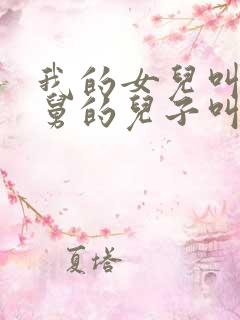 我的女兒叫
舅的兒子叫
夏塔